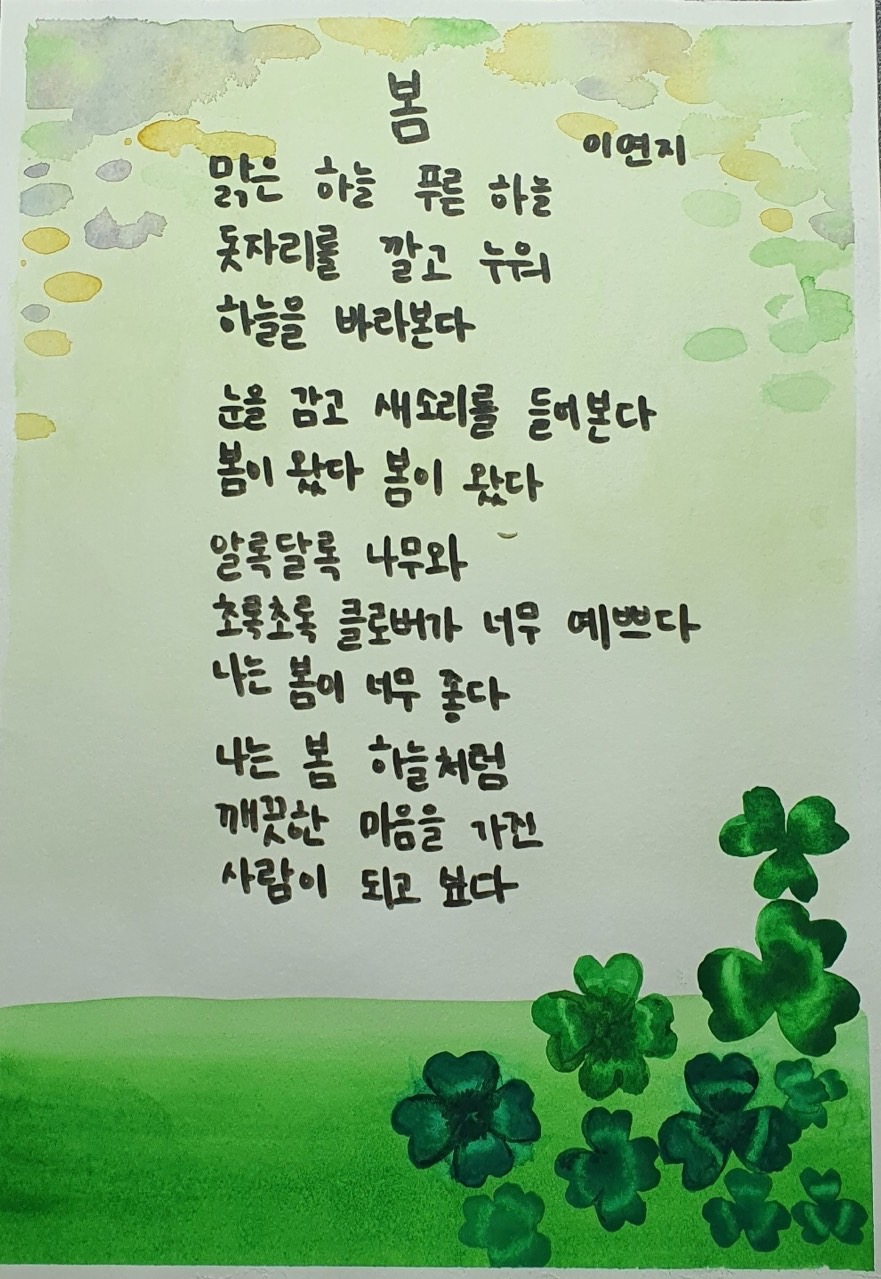 봄
이연지
맑은 하늘 푸른 하늘
돗자리를 깔고 누워
하늘을 바라본다
눈을 감고 새소리를 들어본다
봄이 왔다 봄이 왔다
알록달록 나무와
초록초록 클로버가 너무 예쁘다
나는 봄이 너무 좋다
나는 봄 하늘처럼
깨끗한 마음을 가진
사람이 되고 싶다